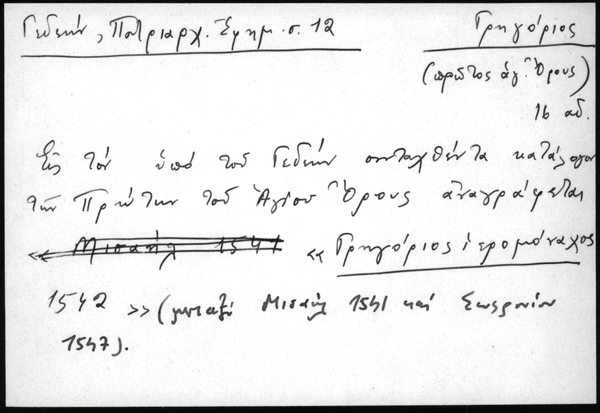 Γεδεών, Πατριαρχ. Ἐφημ. σ. 12
Γρηγόριος
(πρῶτος ἁγ. Ὄρους)
16 αἰ.
Εἰς τόν ὑπό τοῦ Γεδεών συνταχθέντα κατάλογον
τῶν Πρώτων τοῦ Ἁγίου Ὄρους ἀναγράφεται
« Μισαήλ 1541 « Γρηγόριος ἱερομόναχος
1542 » (μεταξύ Μισαήλ 1541 καί Σωφρονίου
1547).